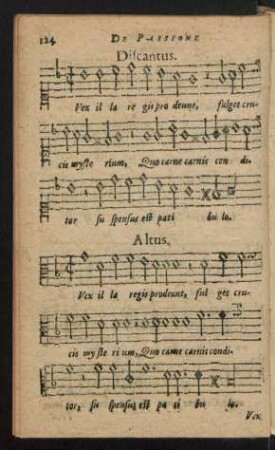 124 DE PASSIONE
Discantus.
Vex il la re gis pro deunt, fulget cru-
cis myste rium, Quo carne carnis con di-
tor su spensus est pati bu lo.
Altus.
Vex il la regis prodeunt, ful get cru-
cis my ste ri um, Quo carne carnis condi-
tor, su spensus est pa ti bu lo.
Vex